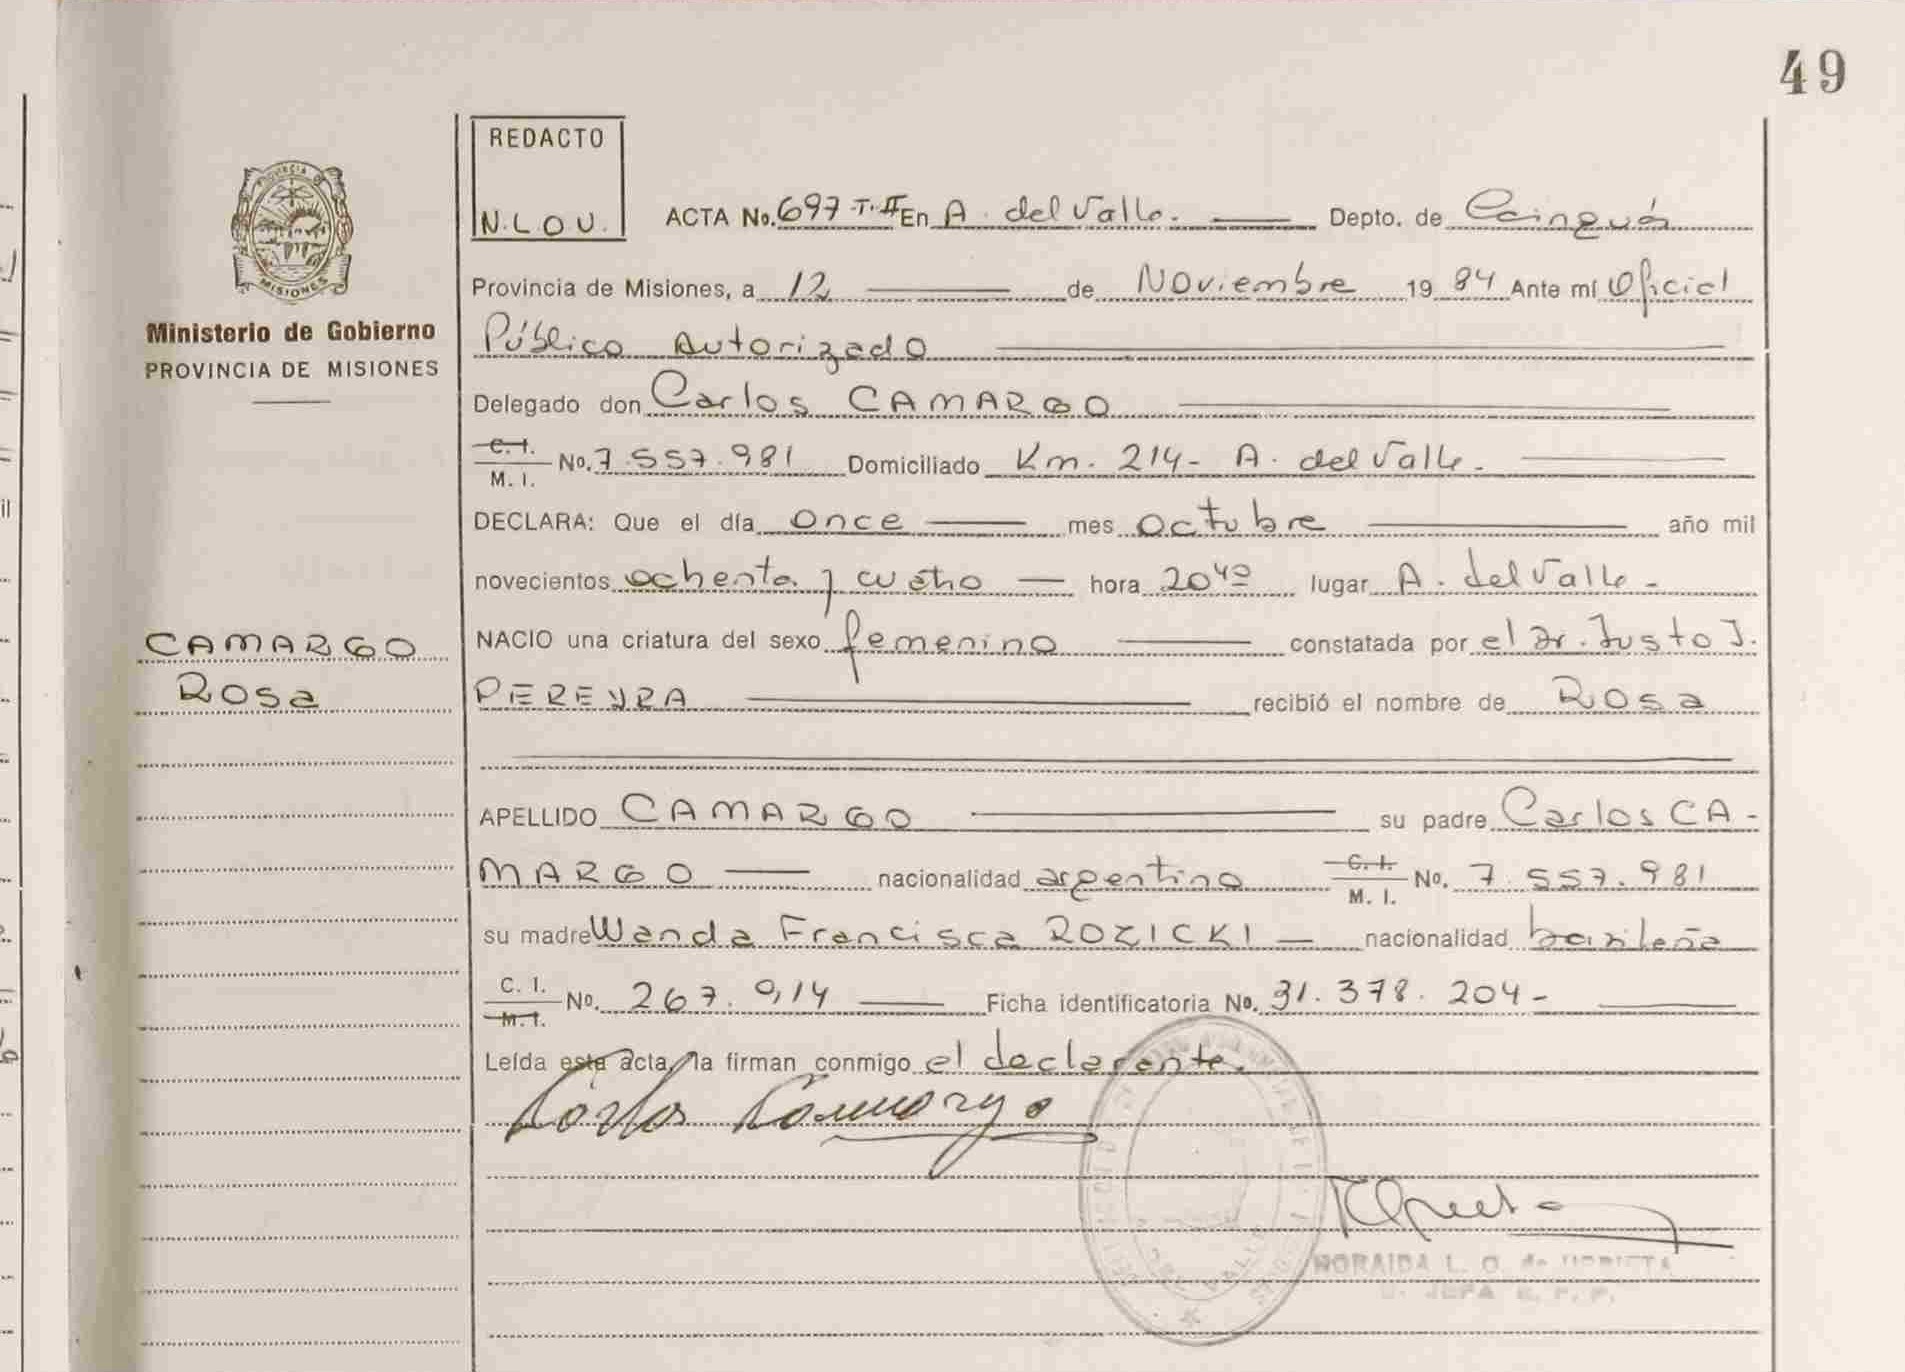 49
REDACTO
N.L.O.U.
ACTA No. 697 T. II En A. del Valle. Depto. de Cainguás
Provincia de Misiones, a 12 de Noviembre 19 84 Ante mí Oficial
Público Autorizado
Delegado don Carlos CAMARGO
C. I.
M. I. No. 7.557.981 Domiciliado Km. 214- A. del Valle.
DECLARA: Que el día once mes octubre año mil
novecientos ochenta y cuatro hora 20 40 lugar A. del Valle-
NACIO una criatura del sexo femenino constatada por el Dr. Justo J.
PEREYRA recibió el nombre de ROSA
APELLIDO CAMARGO su padre Carlos CA-
MARGO nacionalidad argentino C. I. M. I. No. 7.557.981
su madre Wanda Francisca ROZICKI nacionalidad brasileña
C. I.
M. I. No. 267.914 Ficha identificatoria No. 31.378.204-
Leída esta acta, la firman conmigo el declarante.
Carlos Camargo
PROVINCIA DE
MISIONES
Ministerio de Gobierno
PROVINCIA DE MISIONES
CAMARGO
ROSA